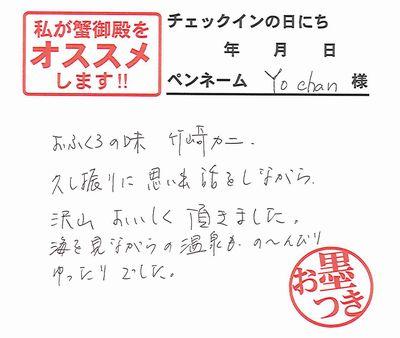 私が蟹御殿を
オススメ
します!!
チェックインの日にち
年 月 日
ペンネーム Yo chan 様
おふくろの味 竹崎カニ.
久し振りに思い出話をしながら.
沢山 おいしく 頂きました。
海を見ながらの温泉も. の〜んびり
ゆったりでした。
お墨つき